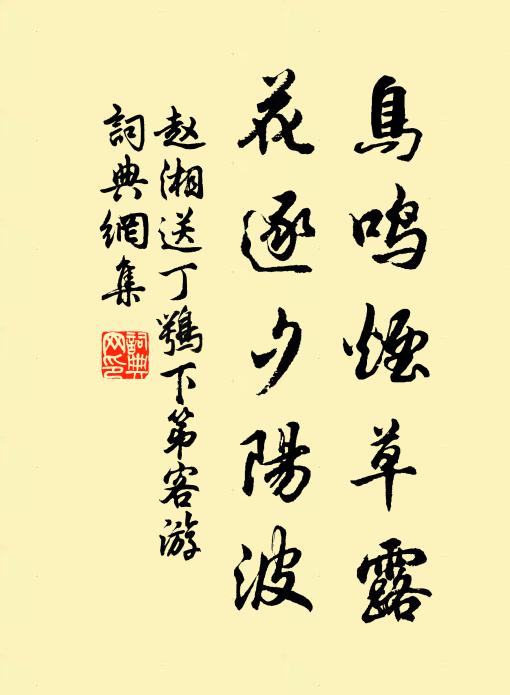 鳥鳴煙草露
花逐夕陽波
赵湘送丁鶚下第客游
詞典網集
詞典网印